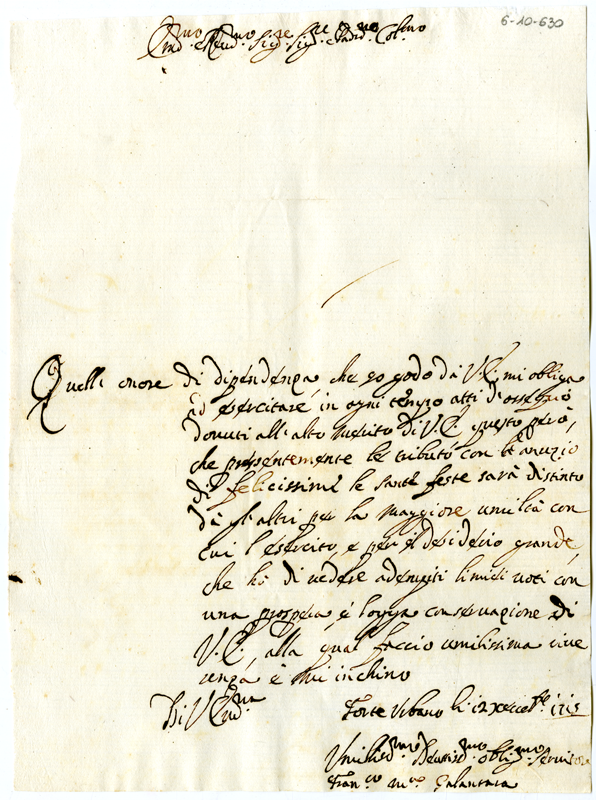 6-10-630
Em.mo e Rev.mo Sig.re Sig.re e Padr.e Col.mo
Quell' onore di dipendenza, che io godo da V.E. mi obliga
ad esercitare in ogni tempo atti d'ossequio
dovuti all'alto merito di V.E. questo però,
che presentemente le tributo con l'anunzio
di felicissime le sante feste sarà distinto
da gl'altri per la maggiore umiltà con
cui l'esercito, e per il desiderio grande,
che hò di vedere adempiti li miei voti con
una prospera è longa conservazione di
V.E. alla qual faccio umilissima rive
renza è mi inchino
Di V. Em.za
Forte Urbano li 12 Xcemb.e 1715
Umiliss.mo Devotiss.mo oblig.mo Servitore
Fran.co M.a